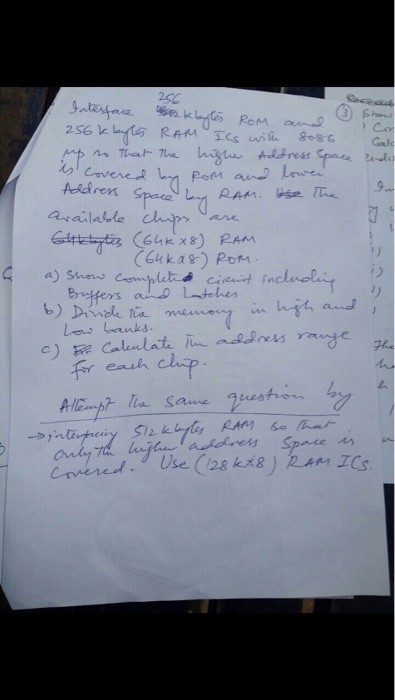 256
Interface k bytes ROM and
256 k bytes RAM ICs with 8086
μp so that the higher Address Space
is covered by ROM and lower
Address Space by RAM. The
available chips are
(64K x 8) RAM
(64K x 8) ROM.
a) Show completed circuit including
Buffers and Latches
b) Divide the memory in high and
Low banks.
c) Calculate the address range
for each chip.
Attempt the same question by
→ interfacing 512 k bytes RAM so that
only the higher address Space is
covered. Use (128 k x 8) RAM ICs.
③ Show